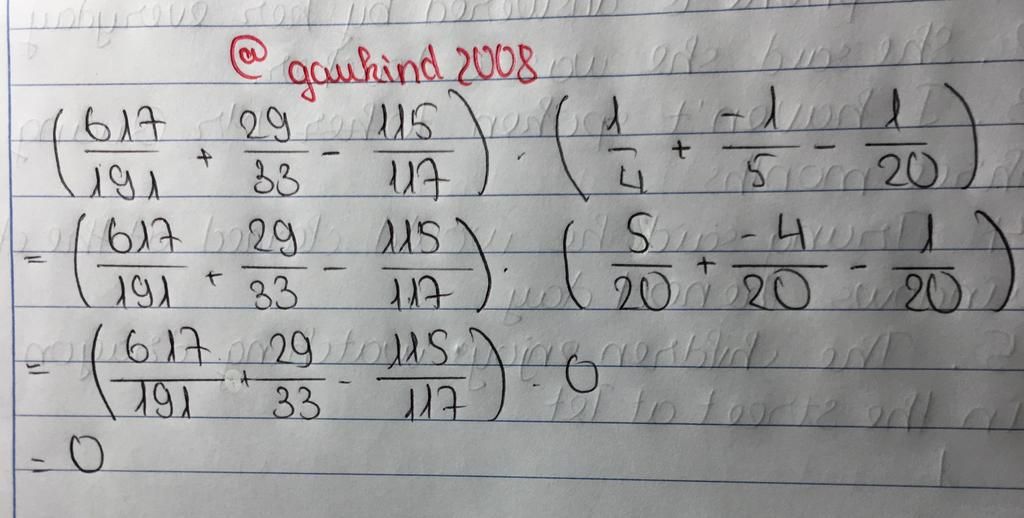 @ gaukind 2008
(617/191 + 29/33 - 115/117) . (1/4 + -1/5 - 1/20)
= (617/191 + 29/33 - 115/117) . (5/20 + -4/20 - 1/20)
= (617/191 + 29/33 - 115/117) . 0
= 0